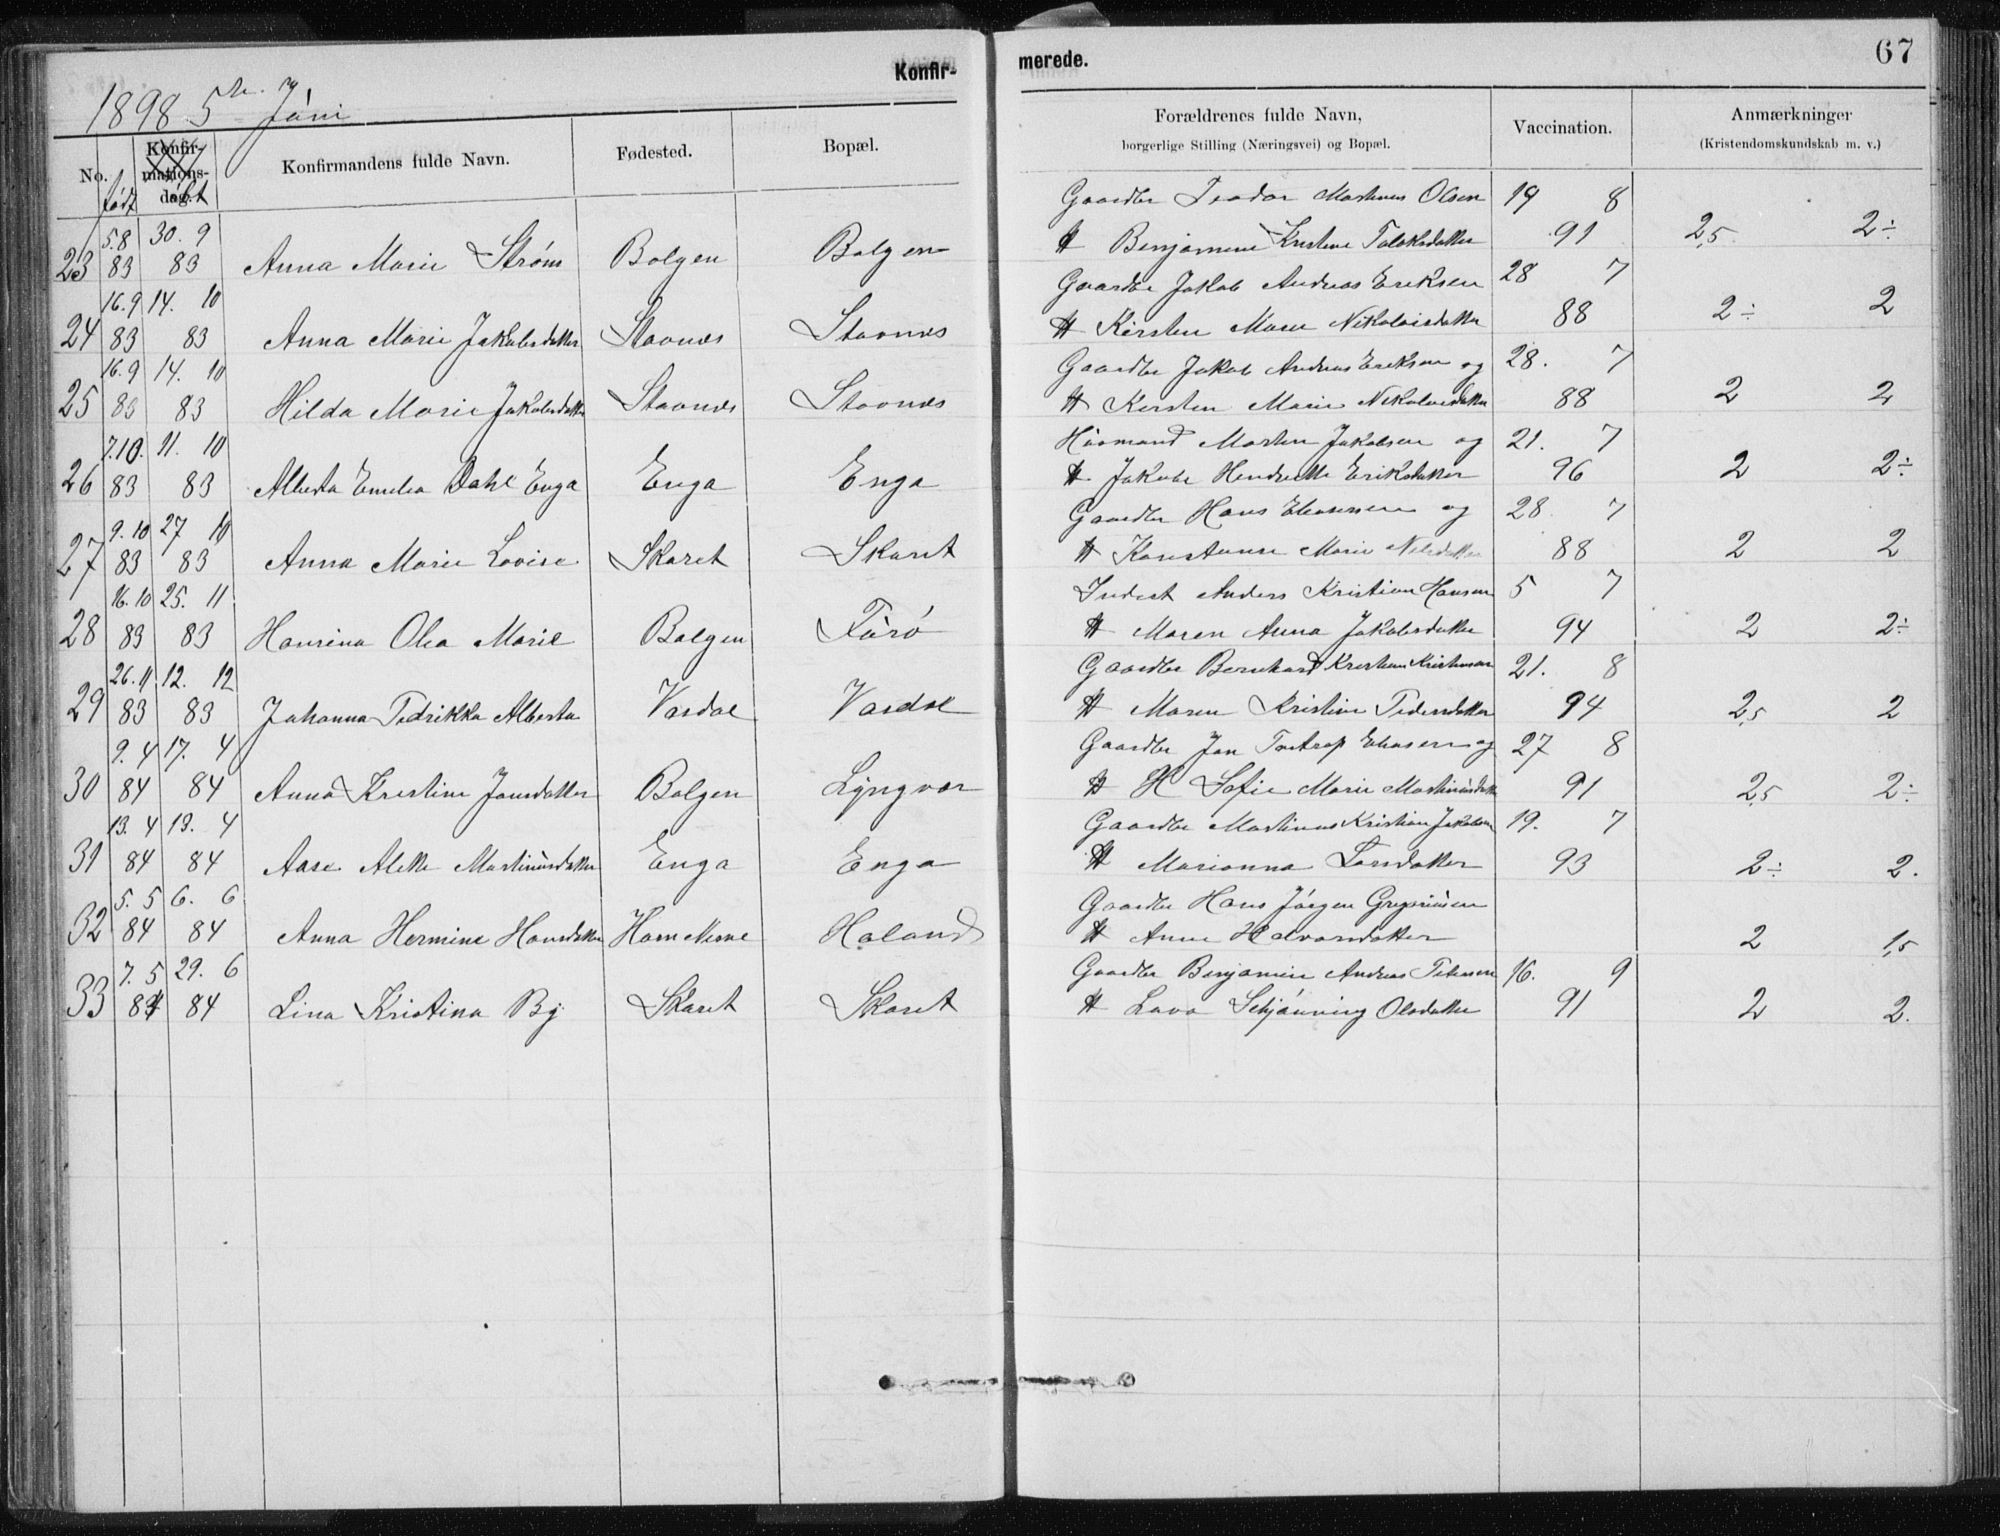 Konfir-
merede.
67
1898 5te Juni
No.
født
Konfir-
mations-
dag.
døbt
Konfirmandens fulde Navn.
Fødested.
Bopæl.
Forældrenes fulde Navn,
borgerlige Stilling (Næringsvei) og Bopæl.
Vaccination.
Anmærkninger
(Kristendomskundskab m. v.)
5.8 30. 9 Gaardbr Teodor Martinus Olsen 19 8
23 83 83 Anna Marie Strøm Bolgen Bolgen H Benjamine Kristine 91 2,5 2÷
16.9 14. 10 Gaardbr Jakob Andreas Eriksen 28 7
24 83 83 Anna Marie Jakobsdatter Stavnes Stavnes H Kirsten Marie Nikolaisdatter 88 2÷ 2
16.9 14. 10 Gaardbr Jakob Andreas Eriksen og 28. 7
25 83 83 Hilda Marie Jakobsdatter Stavnes Stavnes H Kirsten Marie Nikolaisdatter 88 2 2
7.10. 11. 10 Huusmand Morten Jakobsen og 21. 7
26 83 83 Alberta Emelia Dahl Enga Enga Enga H Jakobe Hendrikke Eriksdatter 96 2 2÷
9. 10 27 10 Gaardbr Hans og 28. 7
27 83 83 Anna Marie Lovise Skaret Skaret H Konstanse Marie Nilsdatter 88 2 2
16. 10 25. 11 Inderst Anders Kristian Hansen 5 7
28 83 83 Hansina Olea Marie Bolgen Furø H Maren Anna Jakobsdatter 94 2 2÷
26. 11 12. 12 Gaardbr Bernhard Kristian Kristensen 21. 8
29 83 83 Johanna Pedrikka Alberta Vasdal Vasdal H Maren Kristine Pedersdatter 94 2,5 2
9. 4 17. 4 Gaardbr Jon Tostrop og 27 8
30 84 84 Anna Kristine Jonsdatter Bolgen Lyngvær H H Sofie Marie Martinusdatter 91 2,5 2÷
13. 4 13. 4 Gaardbr Martinus Kristian Jakobsen 19. 7
31 84 84 Aase Alette Martinusdatter Enga Enga H Marianna Larsdatter 93 2÷ 2.
5. 5 6. 6 Gaardbr Hans Jørgen Gregoriusen
32 84 84 Anna Hermine Hansdatter Holand H Anne Halvorsdatter 2 1,5
7. 5 29. 6 Gaardbr Benjamin Andreas Petersen 16. 9
33 84 84 Lina Kristina Bj. Skaret Skaret H Lava Schjønning Olsdatter 91 2 2.